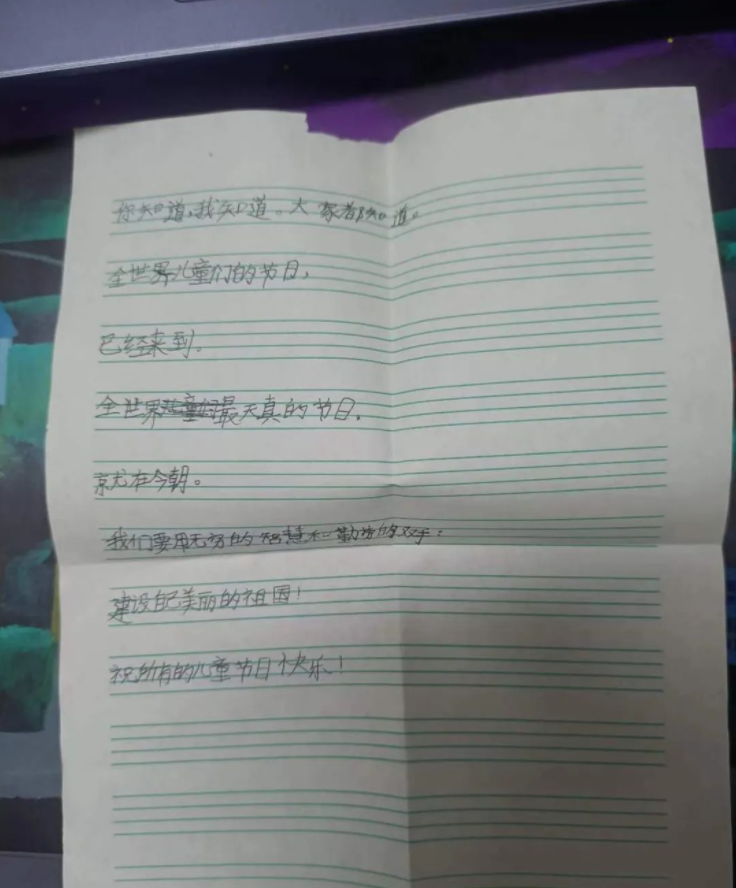 你知道,我知道。大家都知道。
全世界儿童们的节日,
已经来到。
全世界最天真的节日,
就在今朝。
我们要用无穷的智慧和勤劳的双手:
建设自己美丽的祖国!
祝所有的儿童节日快乐!